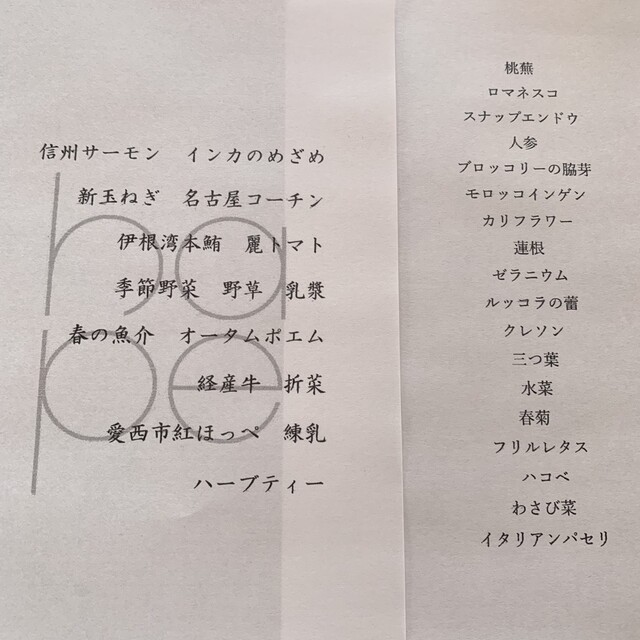 信州サーモン　インカのめざめ
新玉ねぎ　名古屋コーチン
伊根湾本鮪　麗トマト
季節野菜　野草　乳漿
春の魚介　オータムポエム
経産牛　折菜
愛西市紅ほっぺ　練乳
ハーブティー
ha
pe
桃蕪
ロマネスコ
スナップエンドウ
人参
ブロッコリーの脇芽
モロッコインゲン
カリフラワー
蓮根
ゼラニウム
ルッコラの蕾
クレソン
三つ葉
水菜
春菊
フリルレタス
ハコベ
わさび菜
イタリアンパセリ